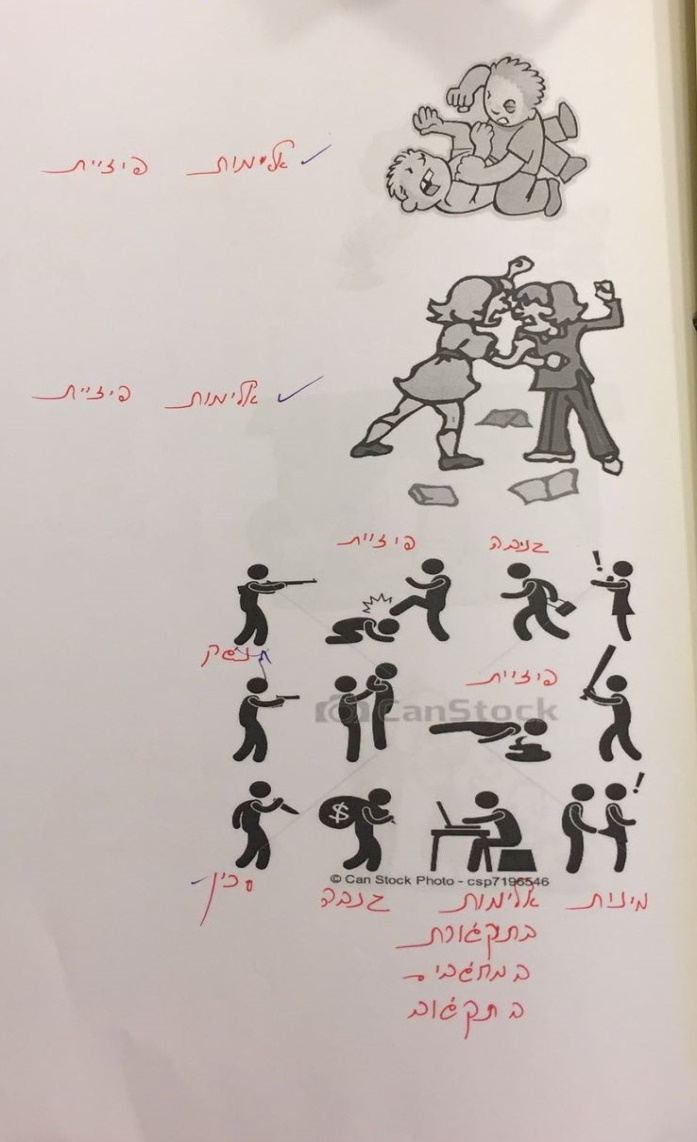 אלימות פיזיית
אלימות פיזיית
גניבה פיזיית
פיזיית
CanStock
© Can Stock Photo - csp7196546
מינית אלימות גנבה סכין
בתקשורת
במחשבים
בתקשוב